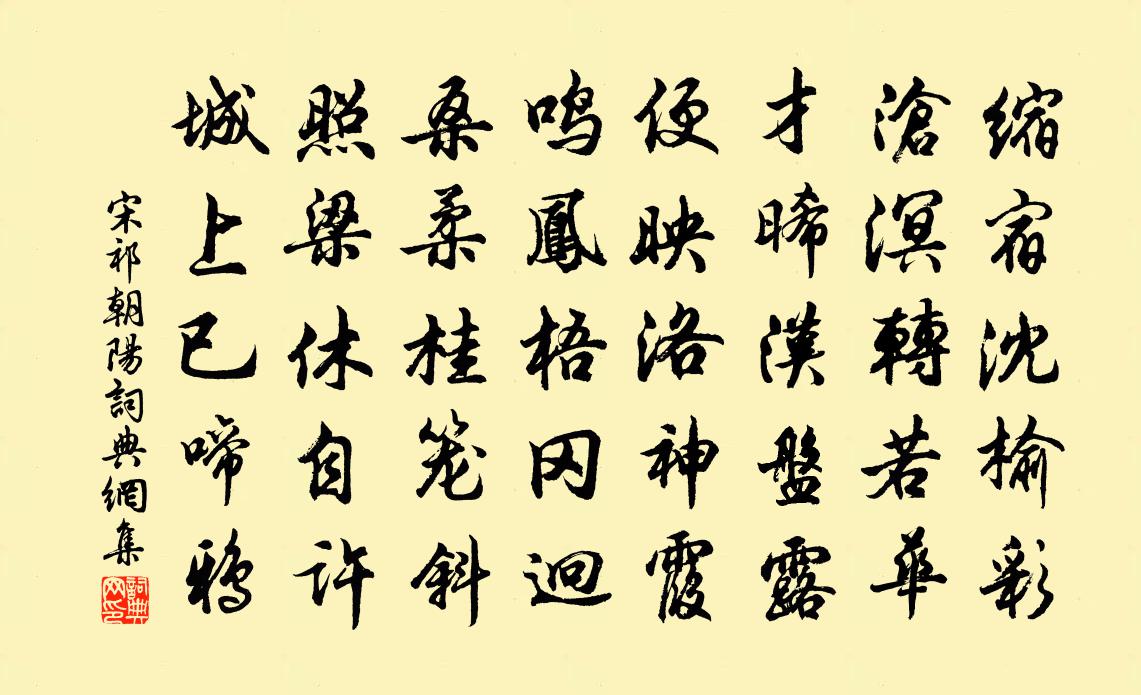 縮宿沈榆彩
滄溟轉若華
才晞漢盤露
便映洛神霞
鳴鳳梧冈迥
桑柔桂笼斜
照梁休自許
城上已啼鴉
宋祁朝陽詞典網集
詞典网印